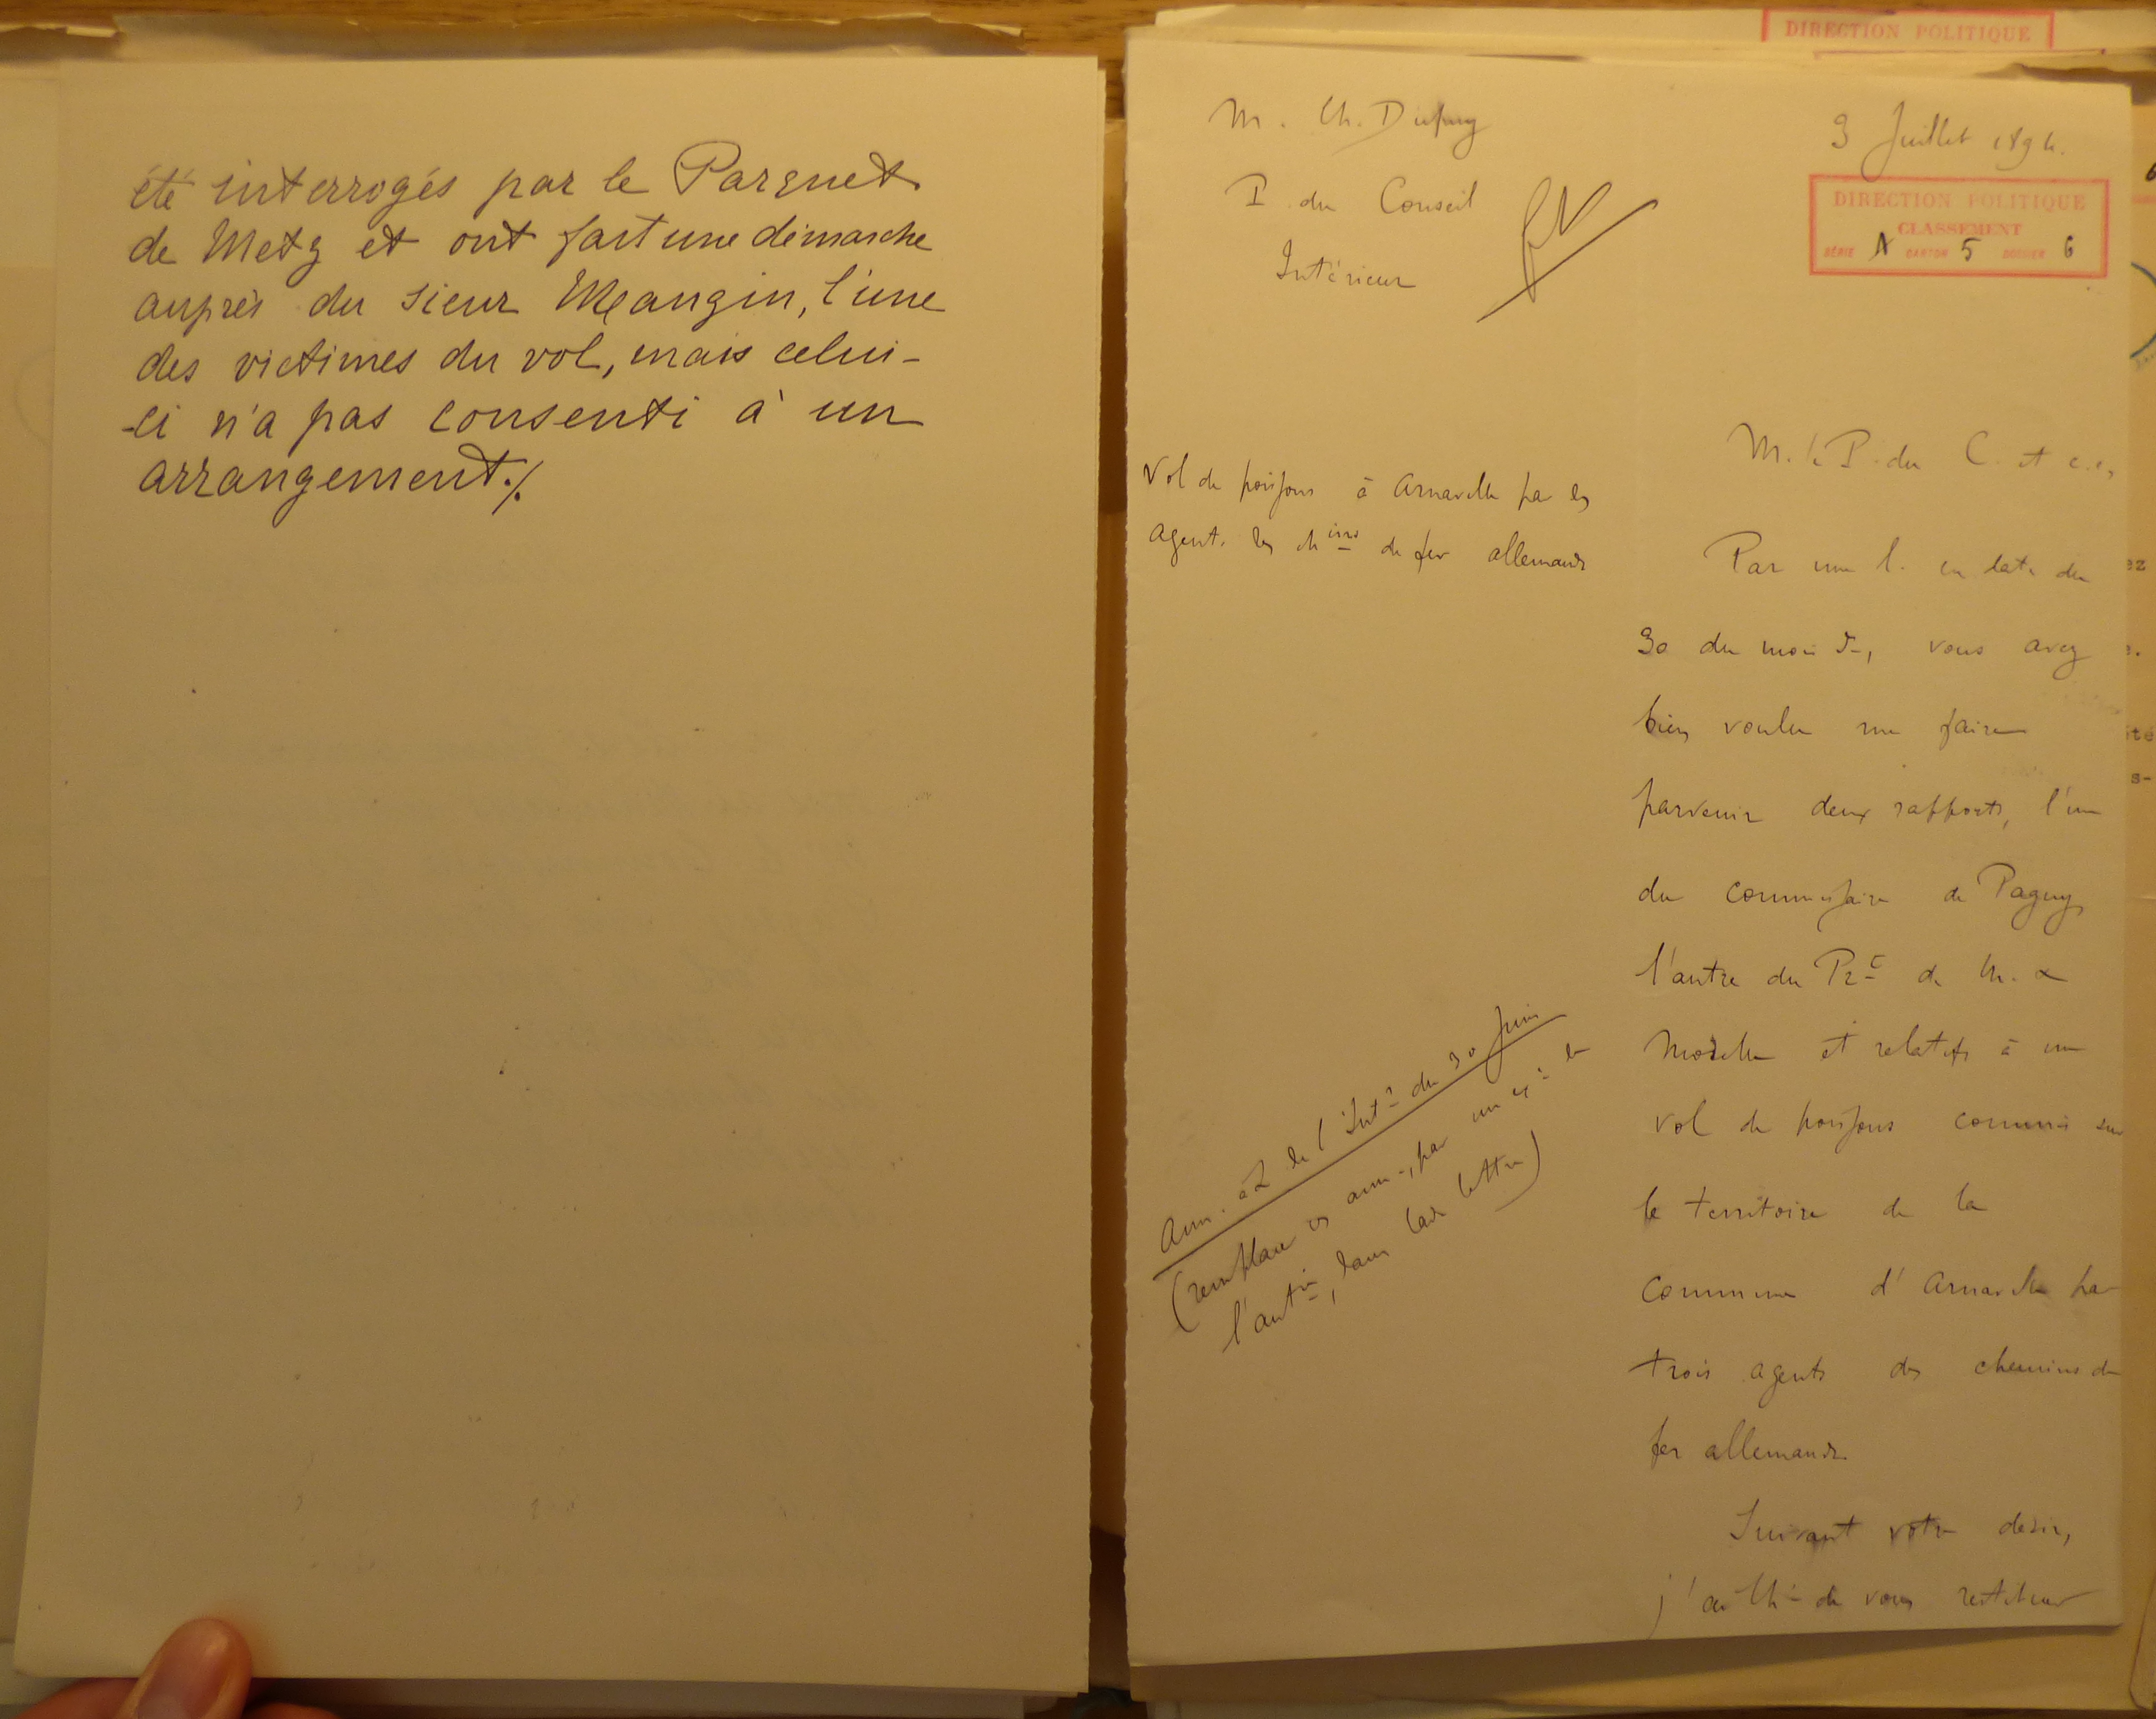 été interrogés par le Parquet
de Metz et ont fait une démarche
auprès du sieur Mangin, l'une
des victimes du vol, mais celui-
-ci n'a pas consenti à un
arrangement./.
DIRECTION POLITIQUE
M. Ch. Dupuy
P. du Conseil
Intérieur
3 Juillet 1894.
DIRECTION POLITIQUE
CLASSEMENT
SÉRIE A CARTON 5 DOSSIER 6
Vol de poissons à Arnaville par les
agents des chins de fer allemands
M. le P. du C. et c.c,
Par une l. en date du
30 du mois dr, vous avez
bien voulu me faire
parvenir deux rapports, l'un
du commissaire de Pagny
l'autre du Pt de M. &
Moselle et relatifs à un
vol de poissons commis sur
le territoire de la
commune d'Arnaville par
trois agents des chemins de
fer allemands.
Suivant votre désir,
j'ai l'h. de vous restituer
Ann. à L de l'Intr du 30 Juin
(remplacer ces ann., par un
l'antre, dans lade lettre)